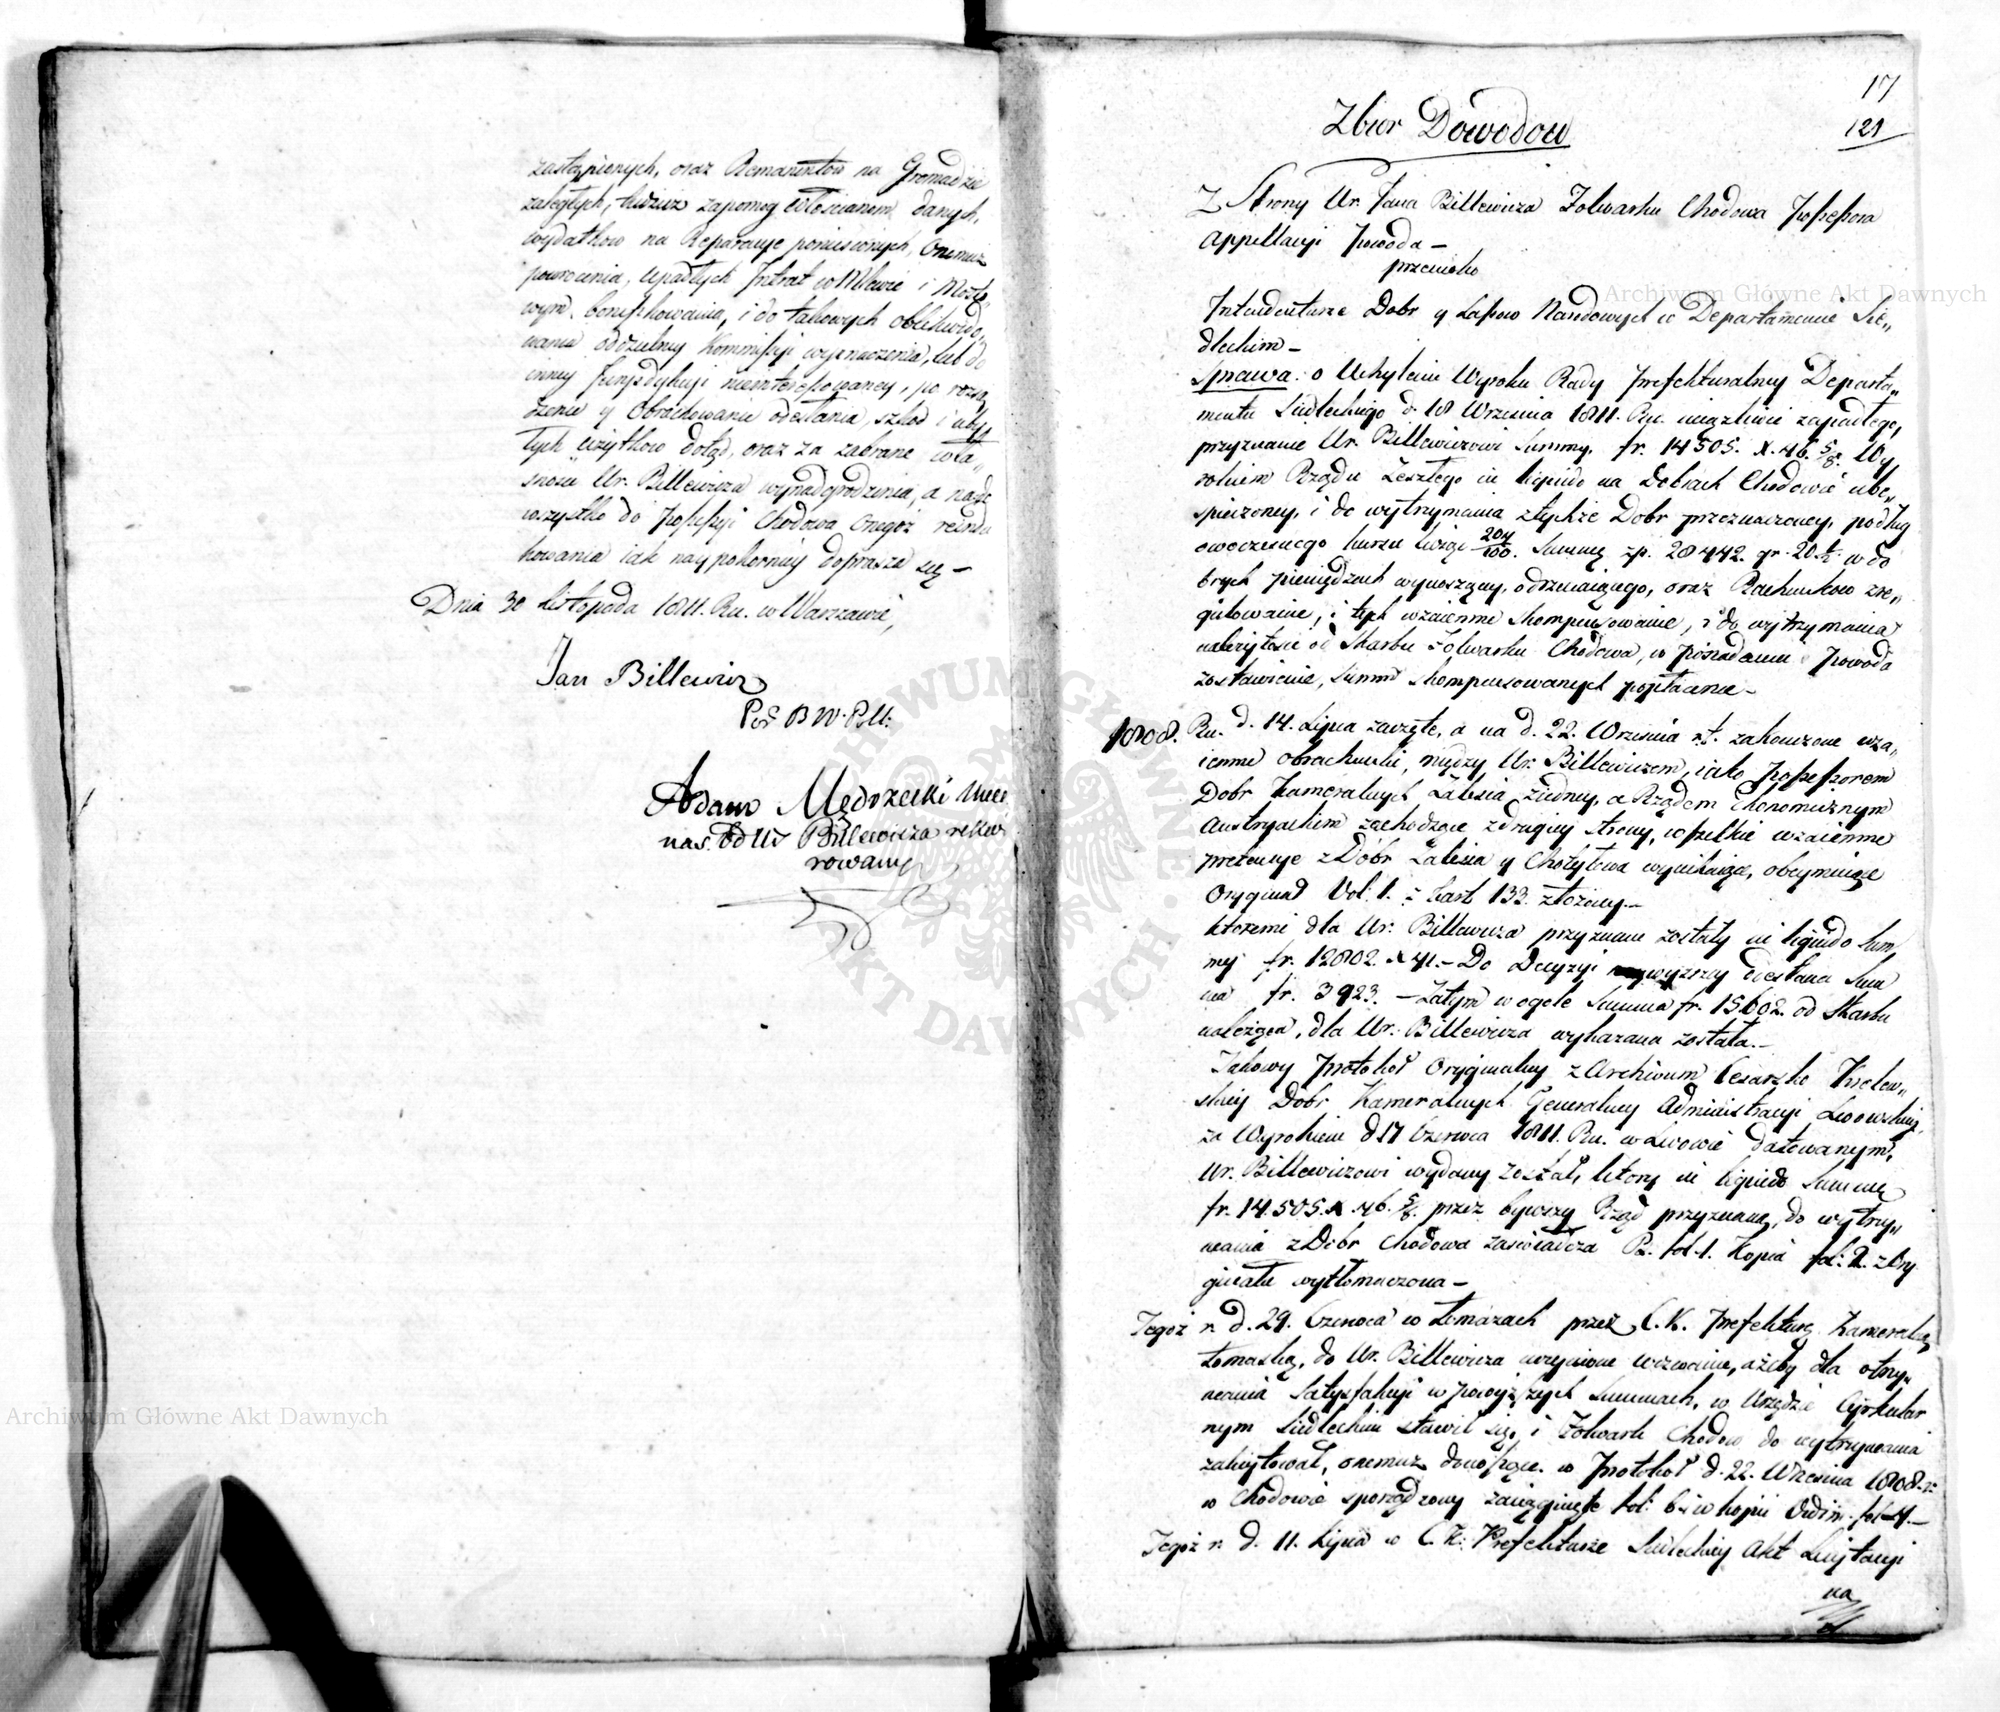 zastąpionych, oraz Remanentow na Gromadzie
zaległych, tudzież zapomog Włościanom danych,
wydatkow na Reparacye poniesionych, Onemuż
powrocenia, upadłych Intrat w Mlewie i Mosto„
wym bonifikowania, i do takowych oblikwido„
wania oddzielney Kommissyi wyznaczenia, lub do
inney Juryzdykcyi nieinteressowaney, po rozsą„
dzenie y Obrachowanie odesłania, szkod i uby„
łych użytkow dotąd, oraz za zabrane wła„
sność Ur. Billewicza wynadgrodzenia, a nade
wszystko do Possessyi Chodowa Onegoż reindu
kowania iak naypokorniey doprasza się —
Dnia 30 Listopada 1811. Ru. w Warszawie,
Jan Billewicz
Poś. B W. Poll:
Adam Mędrzecki Mece
nas. Od Ur Billewicza rekwi
rowany
17
121
Zbior Dowodow
Z Strony Ur. Jana Billewicza Folwarku Chodowa Possessora
Appellacyi Powoda —
przeciwko
Intendenturze Dobr y Lasow Narodowych w Departamencie Sie„
dleckim —
Sprawa: o Uchylenie Wyroku Rady Prefekturalney Departa„
mentu Siedleckiego d. 18 Września 1811. Ru. uciążliwie zapadłego,
przyznanie Ur. Billewiczowi Summy, fr. 14505. X. 46. 5/8. Wy
rokiem Rządu Zeszłego in liquido na Dobrach Chodowie ube„
spieczoney, i do wytrzymania z tychże Dobr przeznaczoney, podług
owoczesnego kursu licząc 204/100. Summę zp. 28442. gr. 20 1/2 w do
brych pieniędzach wynoszący, odrzucaiącego, oraz Rachunkow zre„
gulowanie, i tych wzaiemne skompensowanie, i do wytrzymania
należytości od Skarbu Folwarku Chodowa, w posiadaniu Powoda
zostawienie, Summ skompensowanych popłacenie —
1808. Ru. d. 14. Lipca zaczęte, a na d. 22. Września r.t. zakończone wza„
iemne obrachunki, między Ur. Billewiczem, iako Possessorem
Dobr Kameralnych Zalesia z iedney, a Rządem Ekonomicznym
Austryackim zachodzące z drugiey strony, wszelkie wzaiemne
pretensye z Dobr Zalesia y Chotyłowa wynikaiące, obeymuiące
Oryginał Vol. 1. z kart 133. złożony. —
ktoremi dla Ur. Billewicza przyznane zostały in liquido Sum
my fr. 12802. X 41. — Do Decyzyi wyższey odesłana Sum
ma fr. 3923. — Zatym w ogole Summa fr. 15602. od Skarbu
należąca, dla Ur. Billewicza wykazana została. —
Takowy Protokoł Oryginalny z Archiwum Cesarsko Krolew„
skiey Dobr Kameralnych Generalney Administracyi Lwowskiey
za Wyrokiem d 17 Czerwca 1811. Ru. w Lwowie datowanym,
Ur. Billewiczowi wydany został, ktory in liquido Summę
fr. 14.505. X. 46. 5/8. przez bywszy Rząd przyznaną, do wytrzy„
mania z Dobr Chodowa zaświadcza Pr. fol. 1. Kopia fol: 2. z Ory
ginału wytłomaczona —
Tegoż r. d. 29. Czerwca w Łomazach przez C. K. Prefekturę Kameralną
Łomaską, do Ur. Billewicza uczynione wezwanie, ażeby dla otrzy„
mania Satysfakcyi w powyższych Summach, w Urzędzie Cyrkular
nym Siedleckim stawił się, i Folwark Chodow do wytrzymania
zalicytował, onemuż donoszące. w Protokoł d. 22. Września 1808. r:
w Chodowie sporządzony zaciągnięte fol: 6. i w kopii Vidim. fol 4. —
Tegoż r. d. 11. Lipca w C. K: Prefekturze Siedleckiey Akt Licytacyi
na